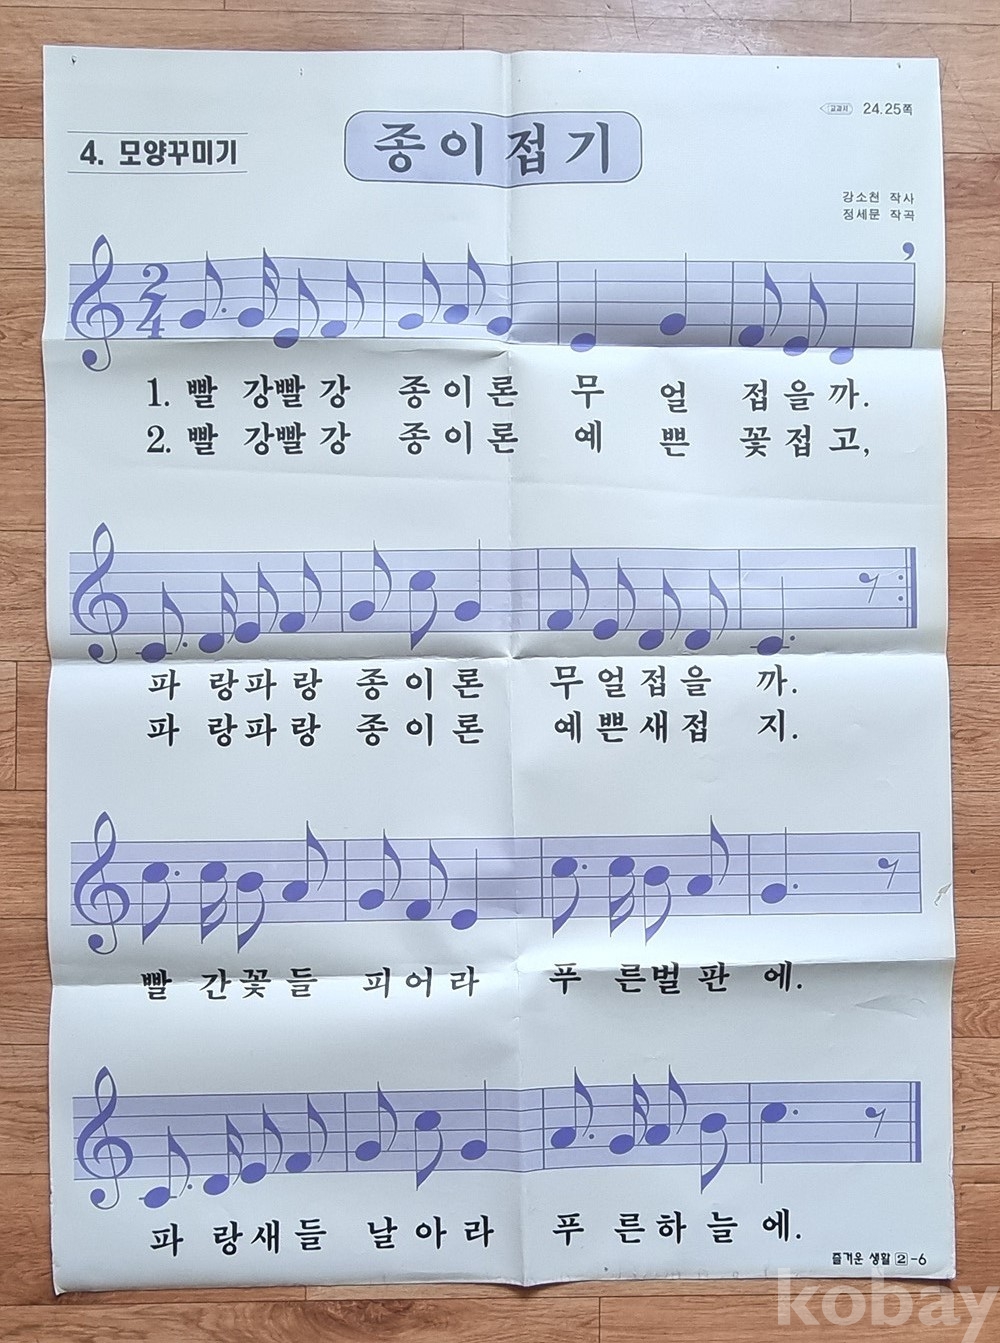 교과서 24.25쪽
4. 모양꾸미기
종이접기
강소천 작사
정세문 작곡
2
4
1. 빨 강빨 강 종이론 무 얼 접을까.
2. 빨 강빨 강 종이론 예 쁜 꽃접고,
파 랑파 랑 종이론 무얼접을 까.
파 랑파 랑 종이론 예쁜새접 지.
빨 간꽃들 피어라 푸 른벌판 에.
파 랑새들 날아라 푸 른하늘 에.
즐거운 생활 2-6
kobay